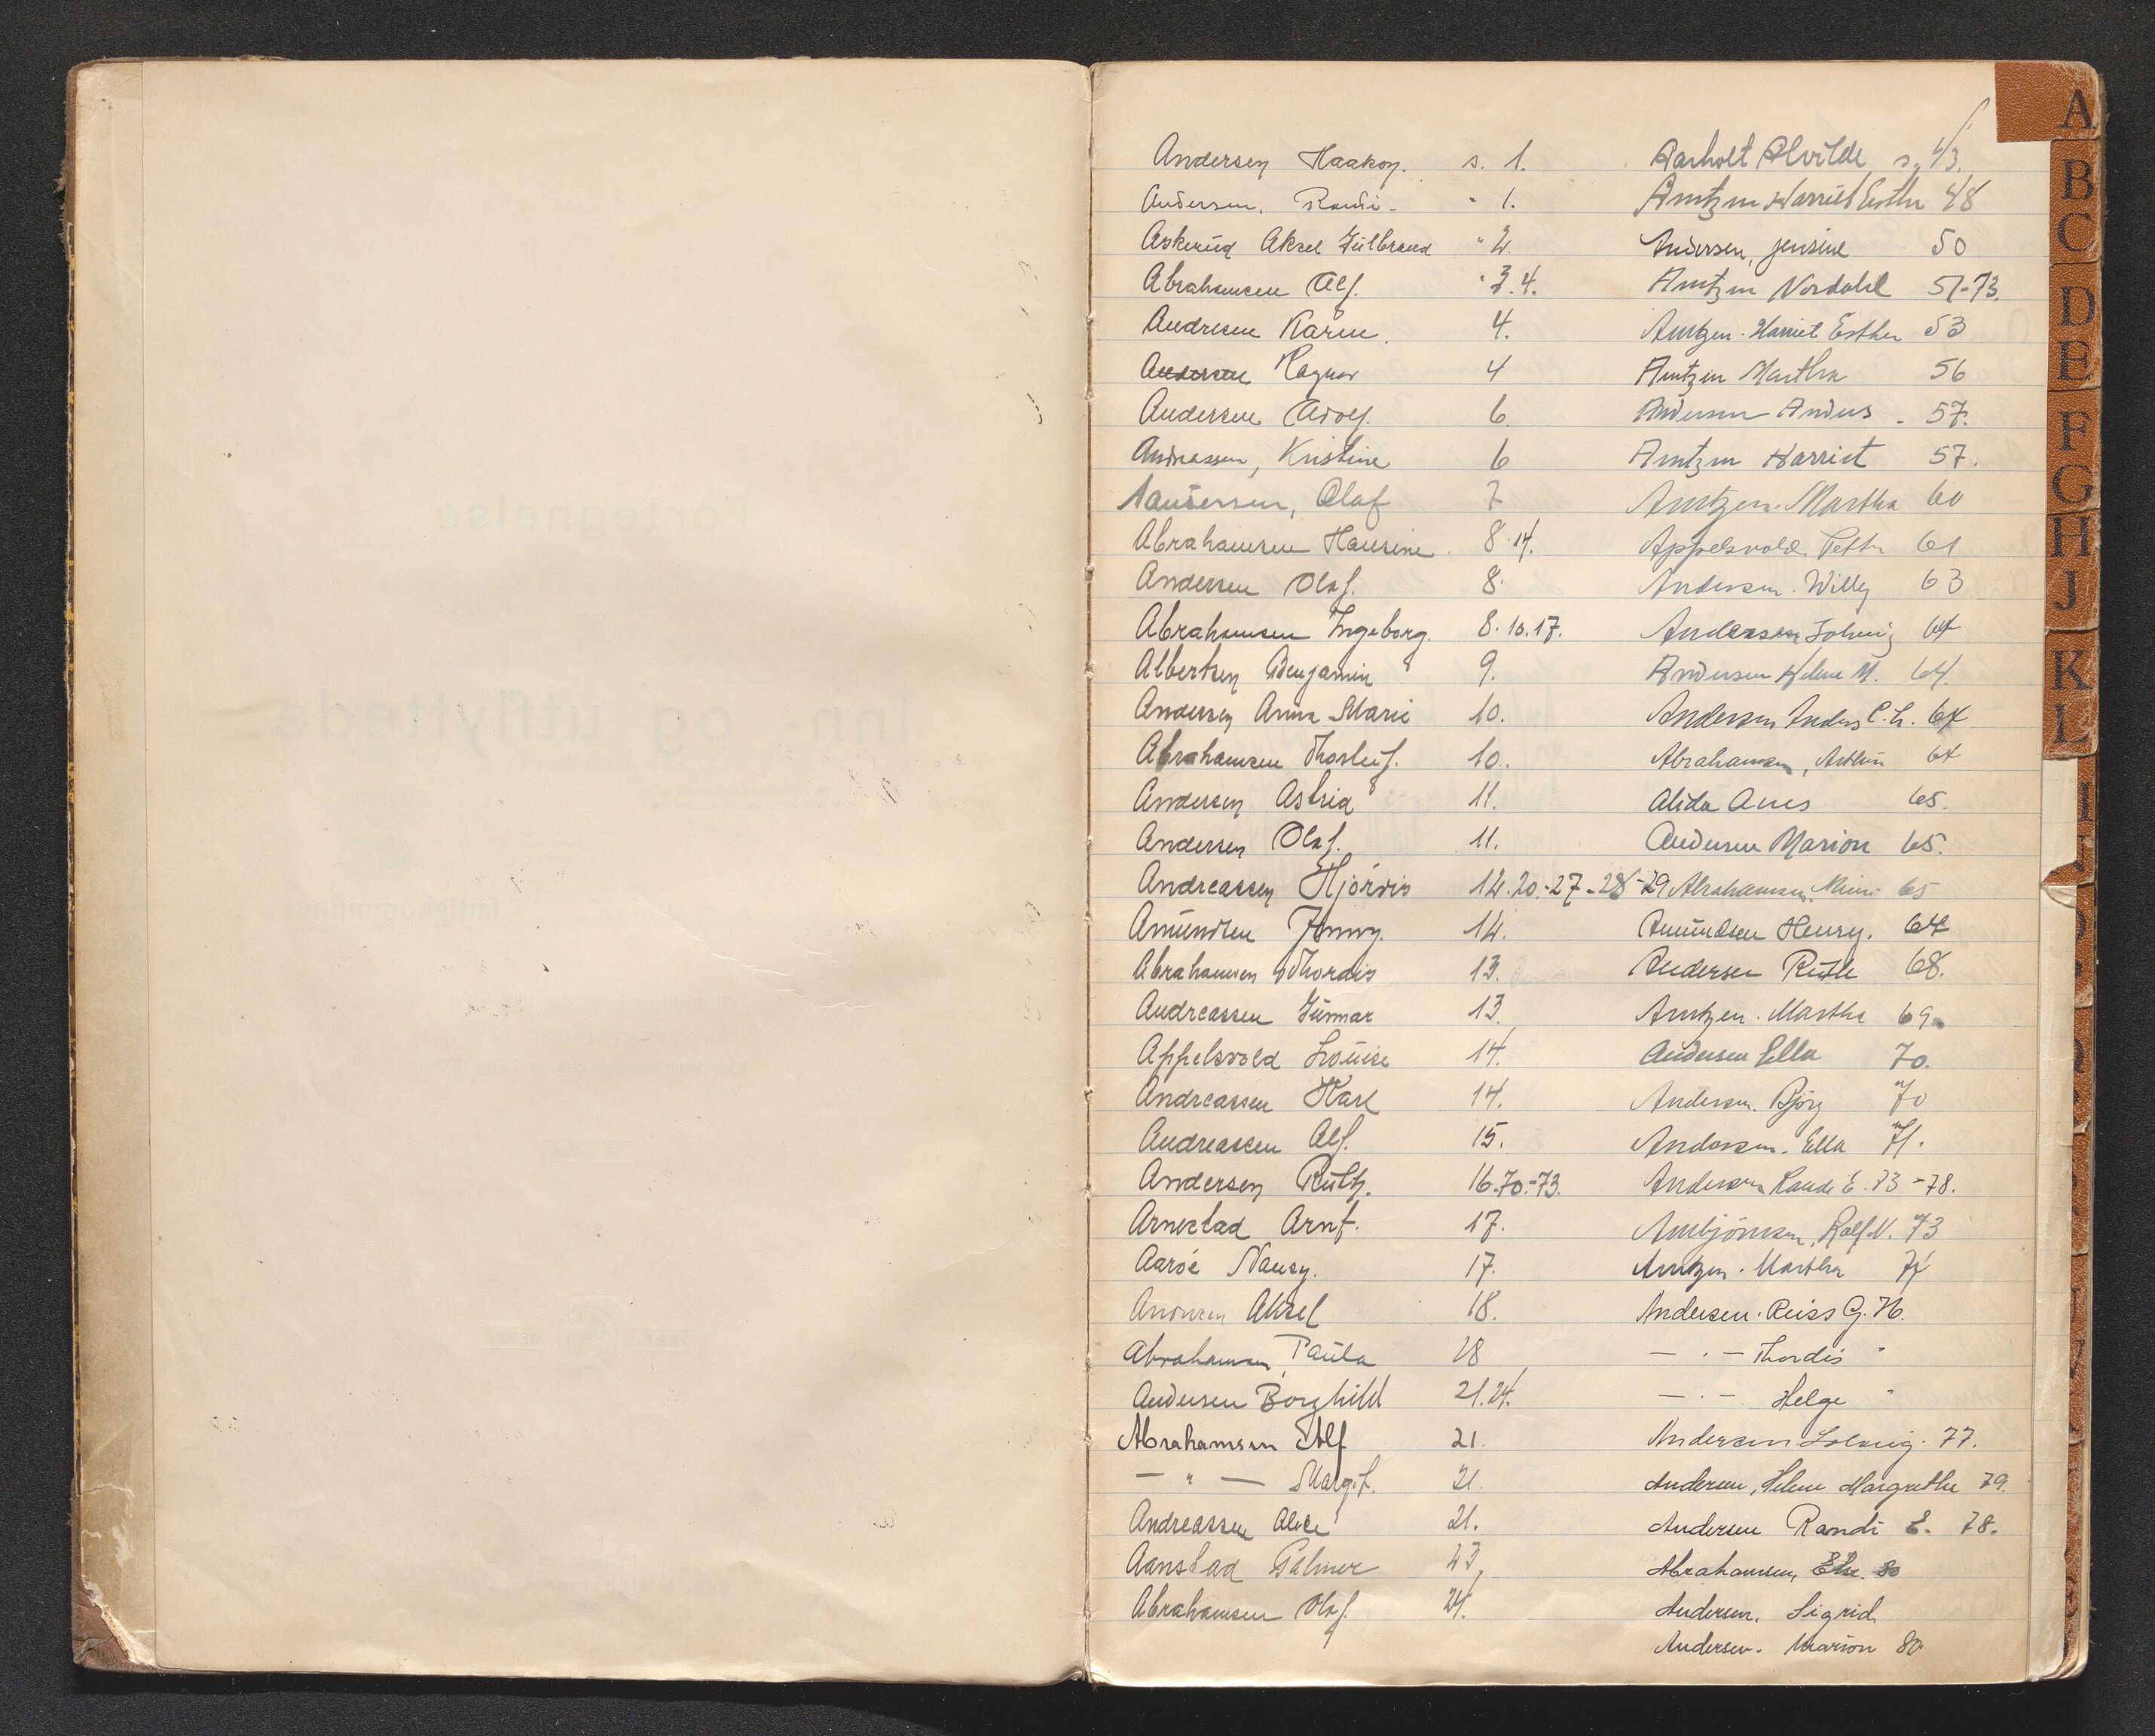 Andersen Haakon. s. 1.
Andersen. Randi - " 1.
Askerud Aksel Gulbrand " 2.
Abrahamsen Alf. " 3.4.
Andresen Karen. 4.
Andersen Ragnar 4
Andersen Adolf. 6.
Andreassen, Kristine 6
Olaf 7
Abrahamsen Hansine 8.14.
Andersen Olaf. 8.
Abrahamsen Ingeborg. 8.10.17.
Albertsen Benjamin 9.
Andersen Anna Marie 10.
Abrahamsen Thorleif. 10.
Andersen Astrid 11.
Andersen Olaf. 11.
Andreassen Hjördis 12.20.-27-28-29
Amundsen Jenny. 12.
Abrahamsen Thordis 13.
Andreassen Gunnar 13.
Appelsvold Louise 14.
Andreassen Karl 14.
Andreassen Alf. 15.
Andersen Ruth. 16.70.-73.
Arnestad Arnt. 17.
Aaröe Nancy. 17.
Andersen Aksel 18.
Abrahamsen, Paula 18
Andersen Borghild 21.24.
Abrahamsen Alf 21.
— " — Margit. 21.
Andreassen Alice 21.
Aanstad Palmer 23.
Abrahamsen Olaf. 24.
Aarholt Alvilde s. 43.
Arntzen Harriet Esther 48
Andersen, Jensine 50
Arntzen Nordahl 51-73.
Arntzen. Harriet Esther 53
Arntzen Martha 56
Andersen Anders - 57.
Arntzen Harriet 57.
Arntzen. Martha 60
Appelsvold Petter 61
Andersen. Willy 63
Andersen Solveig 64
Andersen Helene M. 64.
Andersen Anders C. L. 64
Abrahamsen, 64
Alida Anes 65.
Andersen Marion 65.
Abrahamsen. Mimi 65
Amundsen Henry. 64
Andersen Ruth 68.
Arntzen. Martha 69.
Andersen Ella 70.
Andersen. Bjørg 70
Andersen. Ella 71.
Andersen Randi E. 73-78.
Arnbjörnsen, Rolf N. 73
Arntzen. Martha 74
Andersen. Reiss G. 76.
— . — Thordis "
— . — Helge "
Andersen Solveig. 77.
Andersen, Helene Margrethe 79.
Andersen Randi E. 78.
Abrahamsen, Else. 80
Andersen. Sigrid.
Andersen. Marion 80
A
B
C
D
E
F
G
H
J
K
L